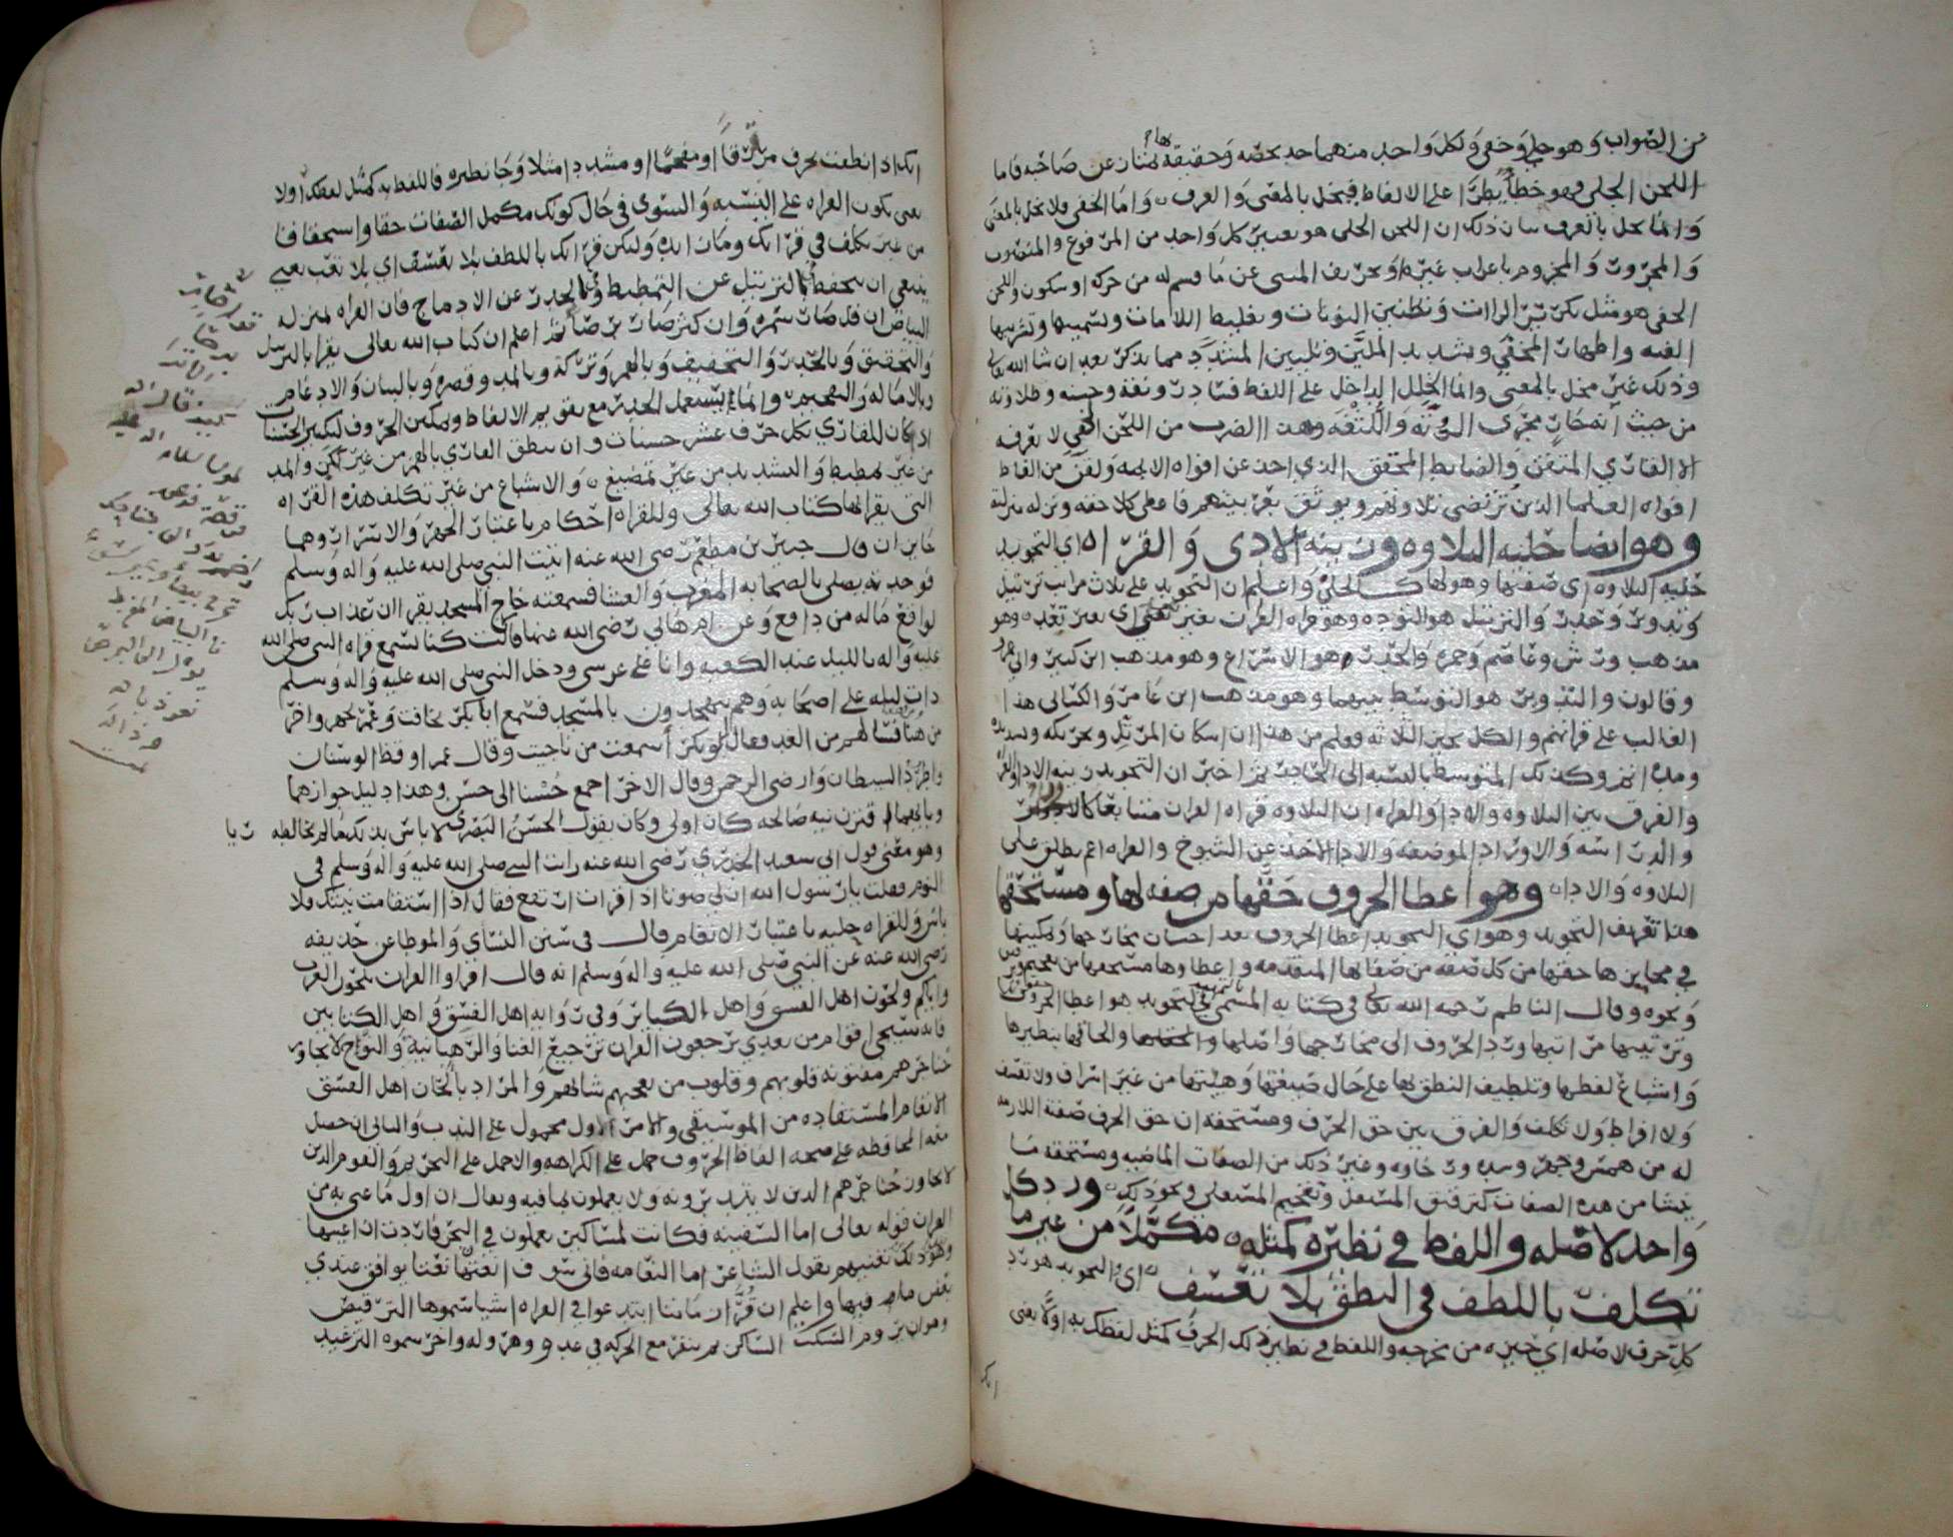 من الصواب وهو جلي وخفي ولكل واحد منهما حد يخصه وحقيقة بها يمتاز عن صاحبه فاما
اللحن الجلي فهو خطأ يطرأ على الالفاظ فيخل بالمعنى والعرف واما الخفي فلا يخل بالمعنى
وانما يخل بالعرف بيان ذلك ان اللحن الجلي هو تغيير كل واحد من المرفوع والمنصوب
والمجرور والمجزوم باعراب غيره او تحريف المبنى عن ما قسم له من حركة او سكون واللحن
الخفي هو مثل تكرير الراات وتطنين النونات وتغليظ اللامات وتسمينها وتشريبها
الغنه واظهار المخفي وتشديد الملين وتليين المشدد مما يذكر بعد ان شا الله تعالى
وذلك غير مخل بالمعنى وانما الخلل الداخل على اللفظ فساد رونقه وحسنه وطلاوته
من حيث انه جار مجرى الرتة واللثغة وهذا الضرب من اللحن الخفي لا يعرفه
الا القاري المتقن والضابط المحقق الذي اخذ عن افواه الايمه ولقن من الفاظ
افواه العلما الذين ترتضى تلاوتهم ويوثق بعربيتهم فاعطى كلا حقه ونزله منزلته
وهو ايضا حليه التلاوه وزينه الادى والقراه اي التجويد
حليه التلاوه اي صفتها وهو لها كالحلي واعلم ان التجويد على ثلاث مراتب ترتيل
وتدوير وحدر والترتيل هو التوده وهو قراه القران بغير بغي اي بغير تعد وهو
مذهب ورش وعاصم وحمزه والحدر هو الاسراع وهو مذهب ابن كثير وابي عمرو
وقالون والتدوير هو التوسط بينهما وهو مذهب ابن عامر والكسائي هذا
الغالب على قراتهم والكل يجيز الثلاثه وعلم من هذا ان اسكان المرتل وتحريكه وتشديده
ومده اتم وكذلك المتوسط بالنسبه الى الحادر ثم اخبر ان التجويد زينه الادا والقراه
والفرق بين التلاوه والادا والقراه ان التلاوه قراه القران متتابعا كالاوراد
والدراسه والاوراد الموضفه والادا الاخذ عن الشيوخ والقراه اعم يطلق على
التلاوه والادا وهو اعطا الحروف حقها من صفه لها ومستحقها
هذا تعريف التجويد وهو اي التجويد اعطا الحروف بعد احسان مخارجها وتمكينها
في محايزها حقها من كل صفه من صفاتها المتقدمه واعطاوها مستحقها من تفخيم وترقيق
ونحوه وقال الناظم رحمه الله تعالى في كتابه المسمى بالتمهيد التجويد هو اعطا الحروف حقوقها
وترتيبها مراتبها ورد الحروف الى مخارجها واصلها والحاقها بنظيرها
واشباع لفظها وتلطيف النطق بها على حال صيغتها وهيئتها من غير اسراف ولا تعسف
ولا افراط ولا تكلف والفرق بين حق الحرف ومستحقه ان حق الحرف صفته اللازمه
له من همس وجهر وشده ورخاوه وغير ذلك من الصفات الماضيه ومستحقه ما
ينشا من هذه الصفات كترقيق المستفل وتفخيم المستعلي ونحو ذلك ورد كل
واحد لاصله واللفظ في نظيره كمثله مكملا من غير ما
تكلف باللطف في النطق بلا تعسف اي والتجويد هو رد
كل حرف لاصله اي حيزه من مخرجه واللفظ في نظير ذلك الحرف كمثل لفظك به اولا يعنى
انك
انك اذا نطقت بحرف مرققا او مفخما او مشددا مثلا وجا نظيره فاللفظ به كمثل لفظك اولا
يعني تكون القراه على النسبه والتسوى في حال كونك مكمل الصفات حقا واستحقاقا
من غير تكلف في قراتك وليكن قراتك باللطف بلا تعسف اي بلا تعب يعني
ينبغي ان يحفظ في الترتيل عن التمطيط وفي الحدر عن الادماج فان القراه بمنزله
البياض ان قل صار سمره وان كثر صار برصا ثم اعلم ان كتاب الله تعالى يقرا بالترتيل
والتحقيق وبالحدر والتخفيف وبالهمز وتركه وبالمد وقصره وبالبيان والادغام
وبالاماله والتفخيم وانما يستعمل الحدر مع تقويم الالفاظ وتمكين الحروف لتكثير الحسنات
اذ كان للقاري بكل حرف عشر حسنات وان ينطق القاري بالهمز من غير لكز والمد
من غير تمطيط والتشديد من غير تمضيغ والاشباع من غير تكلف هذه القراه
التي يقرا بها كتاب الله تعالى وللقراه احكام باعتبار الجهر والاسرار وهما
جايزان قال جبير بن مطعم رضي الله عنه اتيت النبي صلى الله عليه واله وسلم
فوجدته يصلي بالصحابه المغرب والعشا فسمعته خارج المسجد يقرا ان عذاب ربك
لواقع ماله من دافع وعن ام هاني رضي الله عنها قالت كنا نسمع قراه النبي صلى الله
عليه واله بالليل عند الكعبه وانا على عرشي ودخل النبي صلى الله عليه واله وسلم
ذات ليله على اصحابه وهم يتهجدون بالمسجد فسمع ابا بكر يخافت وعمر يجهر واخر
من هنا فسالهم من الغد فقال ابو بكر اسمعت من ناجيت وقال عمر اوقظ الوسنان
واطرد الشيطان وارضى الرحمن وقال الاخر اجمع حسنا الى حسن وهذا دليل جوازهما
قترن نيه صالحه كان اولى وكان يقول الحسن البصري لا باس بذلك مالم يخالطه ريا
وهو معنى قول ابي سعيد الخدري رضي الله عنه رايت النبي صلى الله عليه واله وسلم في
النوم فقلت يا رسول الله ان لي صوتا اذا قرات ارتفع فقال اذا استقامت نيتك فلا
باس وللقراه حليه باعتبار الانغام قال في سنن النساي والموطا عن حذيفه
رضي الله عنه عن النبي صلى الله عليه واله وسلم انه قال اقراوا القران بلحون العرب
واياكم ولحون اهل الفسق واهل الكباير وفي روايه اهل الفسق واهل الكتابين
فانه سيجي اقوام من بعدي يرجعون القران ترجيع الغنا والرهبانيه والنواح لا يجاوز
حناجرهم مفتونه قلوبهم وقلوب من يعجبهم شانهم والمراد بالحان اهل الفسق
الانغام المستفاده من الموسيقى والامر الاول محمول على الندب والثاني ان حصل
معه المحافظه على صحه الفاظ الحروف حمل على الكراهه والا حمل على التحريم والقوم الذين
لا يجاوز حناجرهم الذين لا يتدبرونه ولا يعملون بما فيه ويقال ان اول ما غني به من
القران قوله تعالى اما السفينه فكانت لمساكين يعملون في البحر فاردت ان اعيبها
وهو ذلك تغنيهم بقول الشاعر اما القطاه فاني سوف انعتها نعتا يوافق عندي
بعض ما فيها واعلم ان قرا زماننا ابتدعوا في القراه اشيا سموها الترقيص
وهو ان يروم السكت الساكن ثم ينفر مع الحركه في عدو وهروله واخر سموه الترعيد